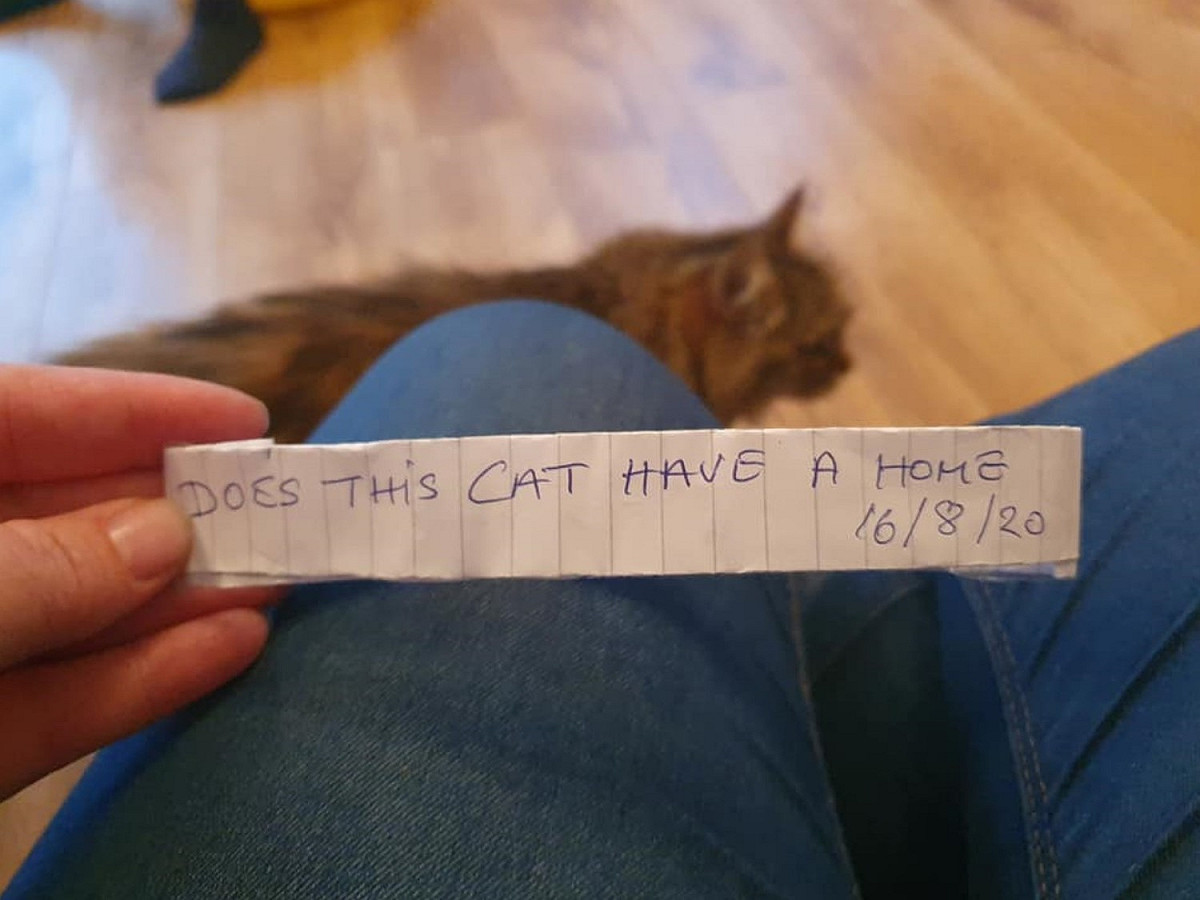 DOES THiS CAT HAVE A HOME
16/8/20